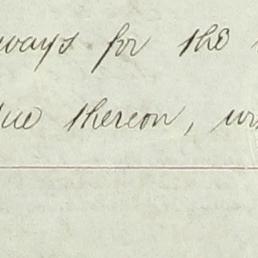 ways for the
due thereon, w